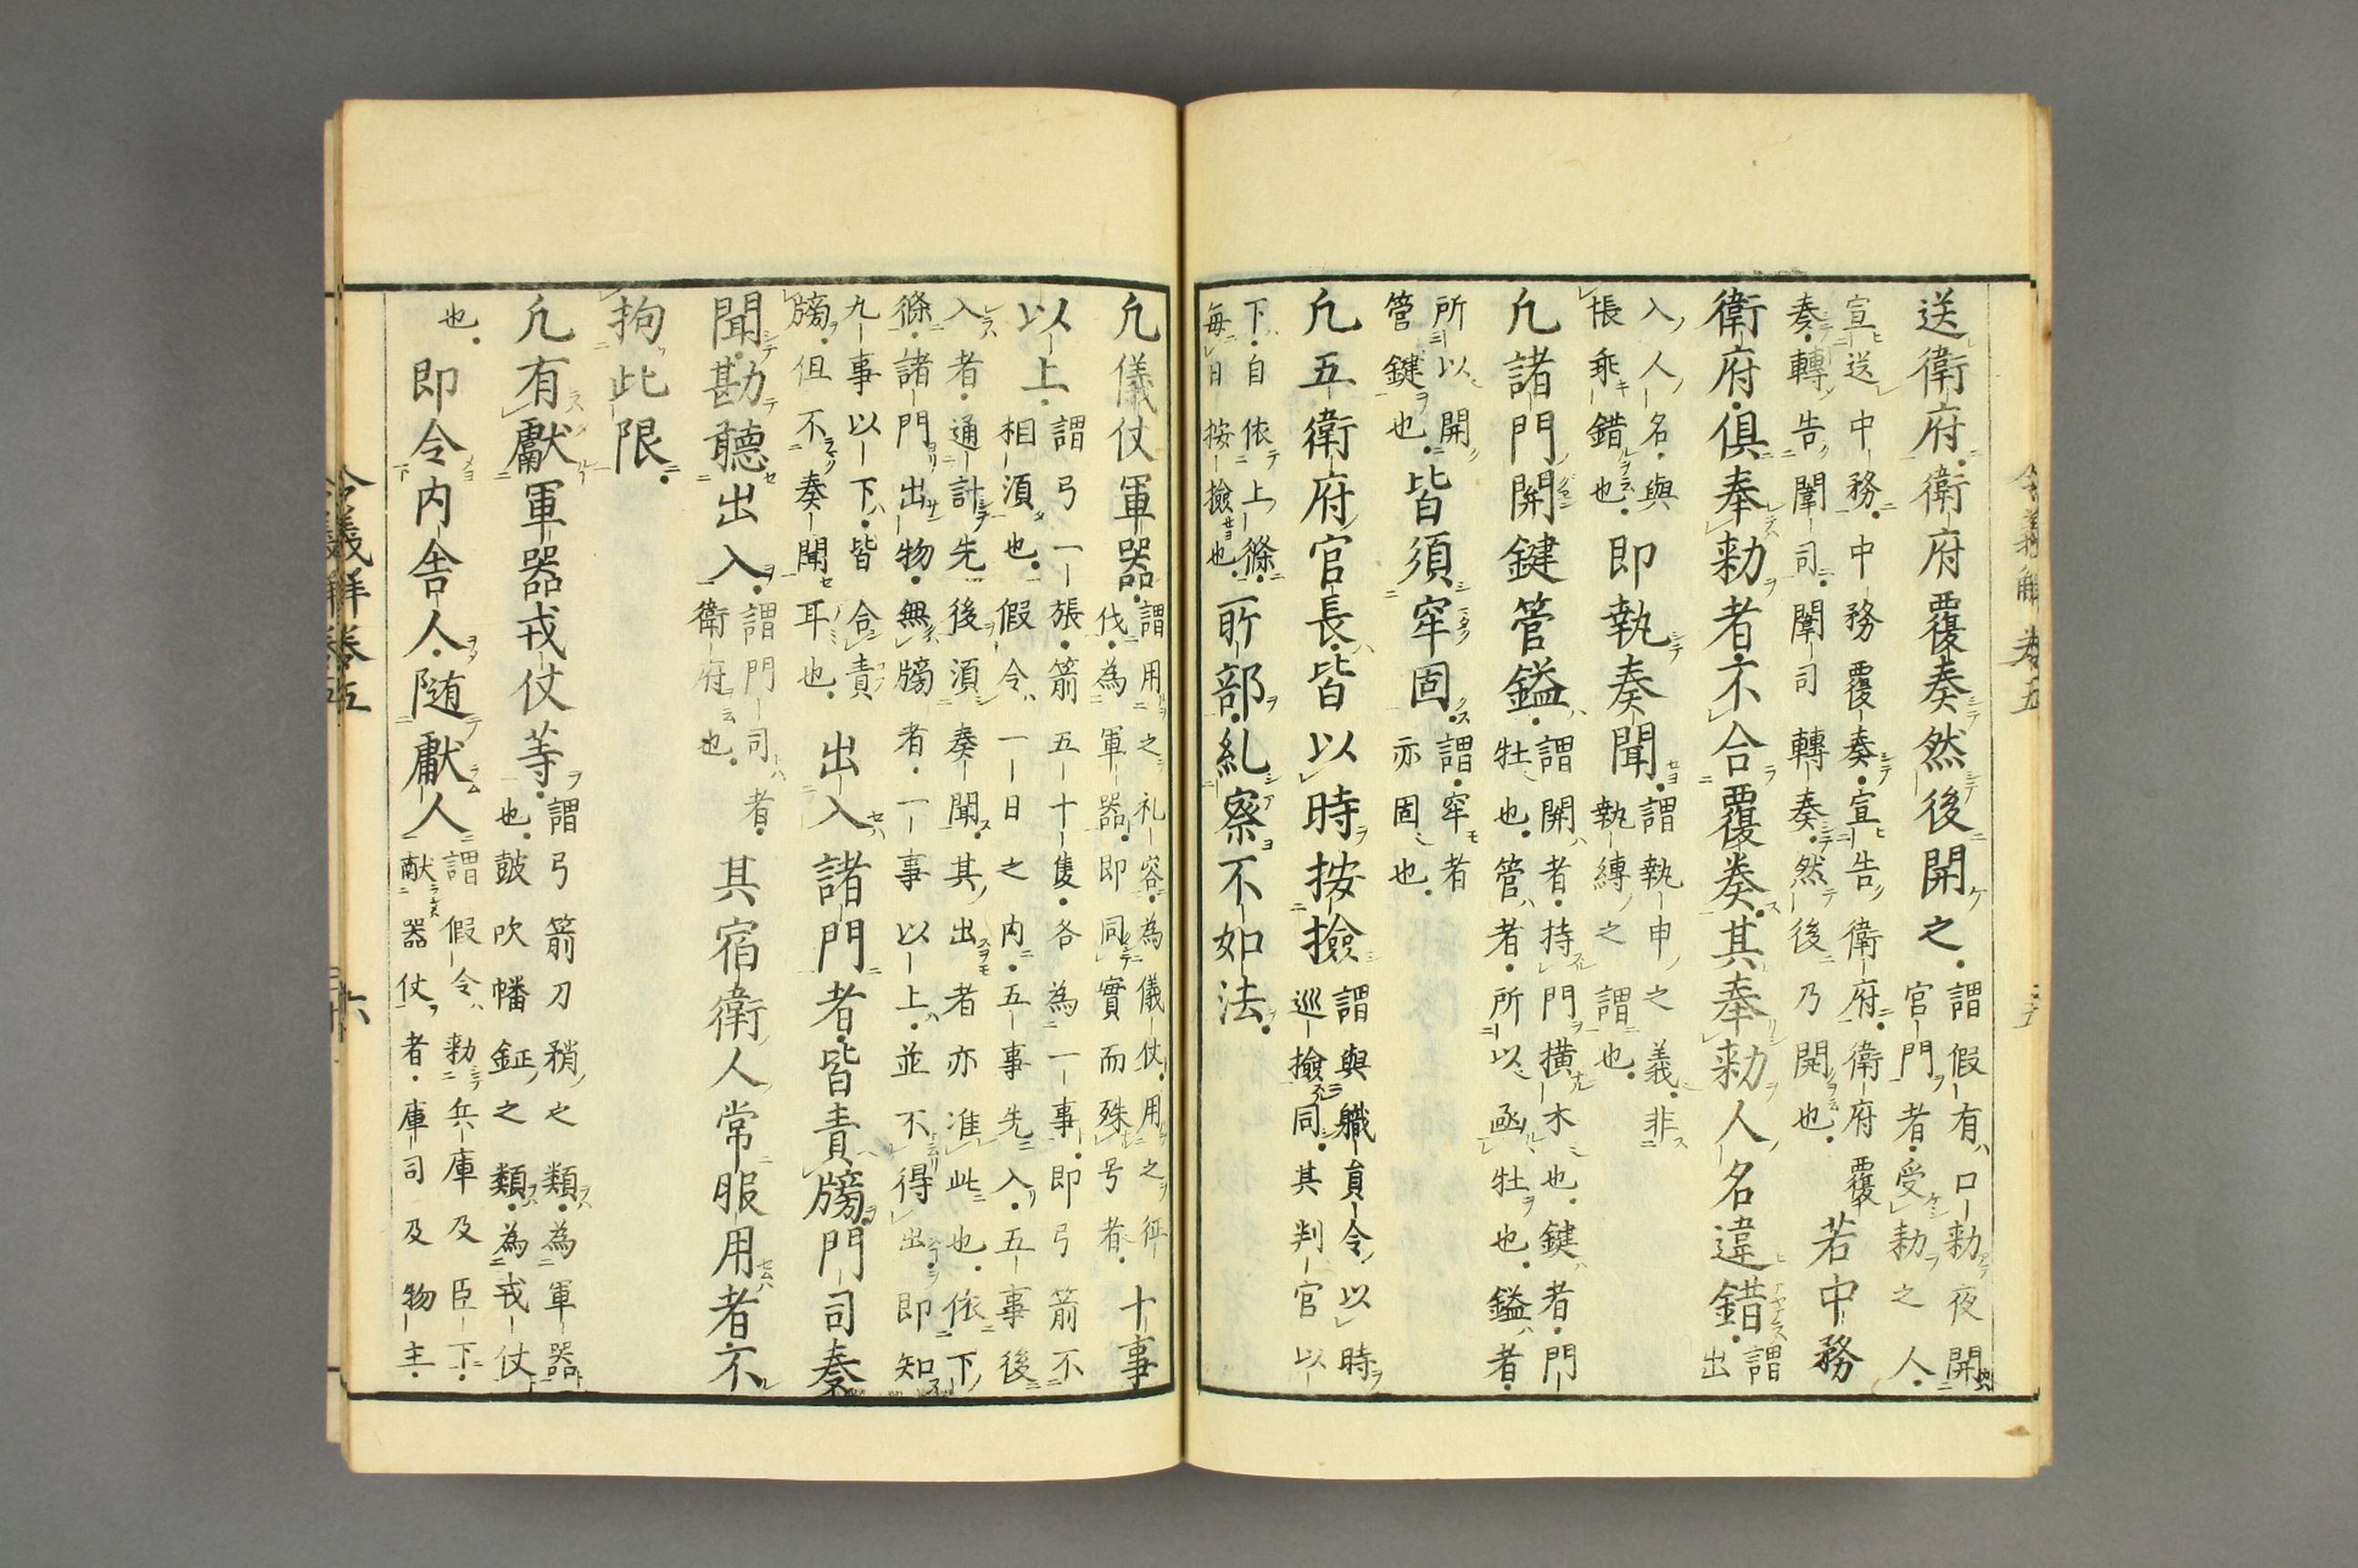 送衛府衛府覆奏然後開之謂假有口勅夜開官門者受勅之人
宣送中務中務覆奏宣告衛府衛府覆奏轉告闈司闈司轉奏然後乃開也若中務
衛府俱奉勅者不合覆奏其奉勅人名違錯謂出
入人名與悵乖錯也即執奏聞謂執申之義非執縛之謂也
凢諸門開鍵管鎰謂開者持門横木也鍵者門牡也管者所以亟牡也鎰者
所以開管鍵也皆須牢固謂牢者亦固也
凢五衛府官長皆以時按撿謂與職員令以時巡撿同其判官以
下自依上條毎日按撿也所部糺察不如法
凢儀仗軍器謂用之礼容為儀仗用之征伐為軍器即同實而殊号者十事
以上謂弓一張箭五十隻各為一事即弓箭不相須也假令一日之内五事先入五事後
入者通計先後須奏聞其出者亦准此也依下條諸門出物無牓者一事以上並不得出即知
九事以下皆合責牓但不奏聞耳也出入諸門者皆責牓門司奏
聞勘聽出入謂門司者衛府也其宿衛人常服用者不
拘此限
凢有獻軍器戎仗等謂弓箭刀矟之類為軍器也鼓吹幡鉦之類為戎仗
也即令内舎人随獻人謂假令勅兵庫及臣下献器仗者庫司及物主
令義解巻五